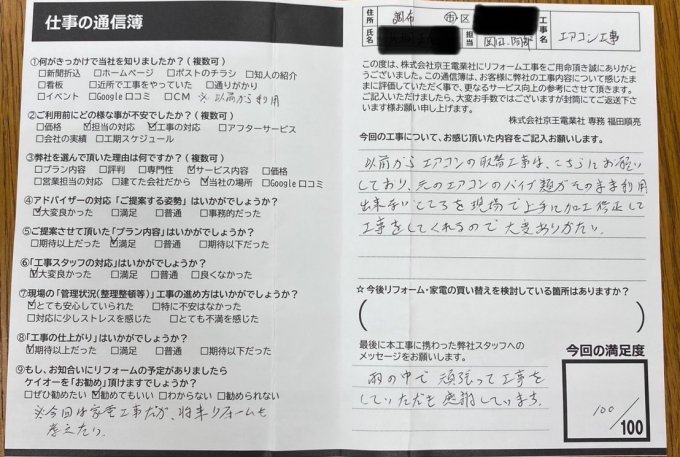 仕事の通信簿
①何がきっかけで当社を知りましたか?(複数可)
□新聞折込 □ホームページ □ポストのチラシ □知人の紹介
□看板 □近所で工事をやっていた □通りがかり
□イベント □Google口コミ □CM ※以前から利用
②ご利用前にどの様な事が不安でしたか?(複数可)
□価格 ☑担当の対応 ☑工事の対応 □アフターサービス
□会社の実績 □工期スケジュール
③弊社を選んで頂いた理由は何ですか?(複数可)
□プラン内容 □評判 □専門性 ☑サービス内容 □価格
□営業担当の対応 □建てた会社だから ☑当社の場所 □Google口コミ
④アドバイザーの対応「ご提案する姿勢」はいかがでしょうか?
☑大変良かった □満足 □普通 □事務的だった
⑤ご提案させて頂いた「プラン内容」はいかがでしょうか?
□期待以上だった ☑満足 □普通 □期待以下だった
⑥「工事スタッフの対応」はいかがでしょうか?
☑大変良かった □満足 □普通 □良くなかった
⑦現場の「管理状況(整理整頓等)」工事の進め方はいかがでしょうか?
☑とても安心していられた □特に不安はなかった
□対応に少しストレスを感じた □とても不満を感じた
⑧「工事の仕上がり」はいかがでしょうか?
☑期待以上だった □満足 □普通 □期待以下だった
⑨もし、お知合いにリフォームの予定がありましたら
ケイオーを「お勧め」頂けますでしょうか?
□ぜひ勧めたい ☑勧めてもいい □わからない □勧められない
※今回は家電工事だが、将来リフォームも
考えたい。
住所 調布 市・区
氏名 担当 岡田、阿部
工事名 エアコン工事
この度は、株式会社京王電業社にリフォーム工事をご用命頂き誠にありが
とうございました。この通信簿は、お客様に弊社の工事内容について感じたま
まに評価していただく事で、更なるサービス向上の参考にさせて頂きます。
ご記入いただけましたら、大変お手数ではございますが封筒にてご返送下さ
います様お願い申し上げます。
株式会社京王電業社 専務 福田順亮
今回の工事について、お感じ頂いた内容をご記入お願いします。
以前からエアコンの取替工事は、こちらにお願い
しており、元のエアコンのパイプ類がそのまま利用
出来ないところを現場で上手に加工修正して
工事をしてくれるので大変ありがたい。
☆今後リフォーム・家電の買い替えを検討している箇所はありますか?
( )
最後に本工事に携わった弊社スタッフへの
メッセージをお願いします。
雨の中で頑張って工事を
していただき感謝しています。
今回の満足度
100/100